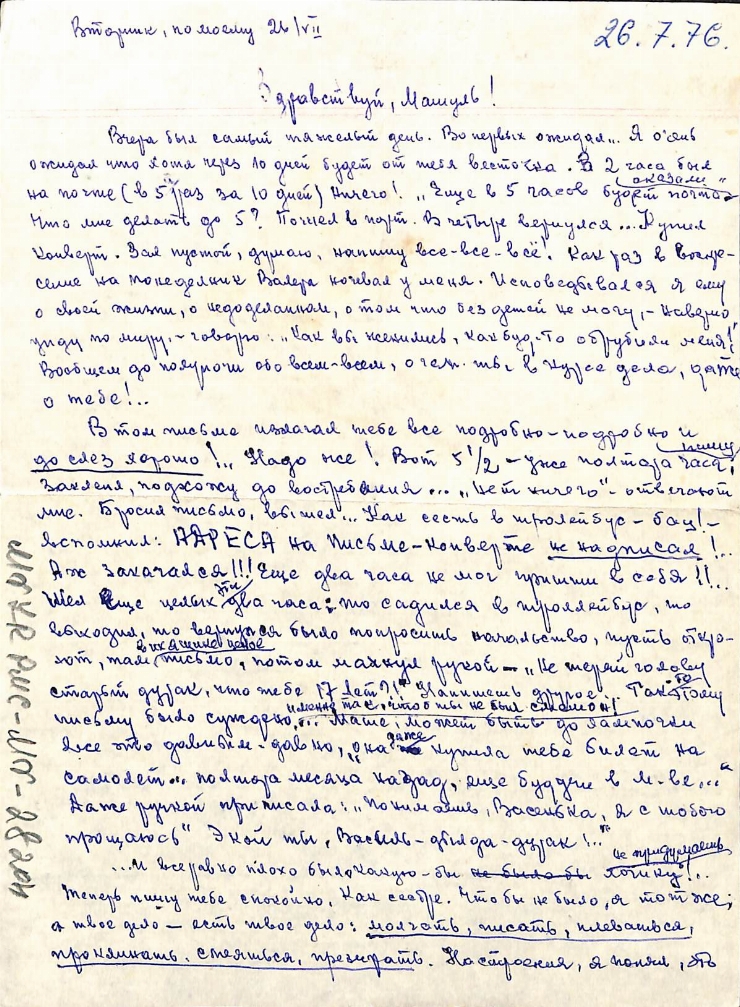 Вторник, по моему 26/VII
26.7.76.
Здравствуй, Машуль!
Вчера был самый тяжелый день. Во первых ожидал... Я очень
ожидал что хотя через 10 дней будет от тебя весточка. В 2 часа был
на почте (в 5ый раз за 10 дней) Ничего! „Еще в 5 часов будет почта" оказали
Что мне делать до 5? Пошел в порт. В четыре вернулся... Купил
конверт. Зал пустой, думаю, напишу все-все-всё! Как раз в воскре-
сение на понеделник Валера ночевал у меня. Исповедывался я ему
о своей жизни, о недоделанном, о том что без детей не могу, – наверно
уйду по миру, – говорю: „Как вы женились, как будто обрубили меня!
Вообщем до полуночи обо всем-всем, о чем ты в курсе дела, даже
о тебе!..
В том письме излагал тебе все подробно-подробно и пишу
до слез хорошо!.. Надо же! Вот 5 1/2 – уже полтора часа,
Заклеил, подхожу до востребания... „Нет ничего" – отвечают
мне. Бросил письмо, вышел... Как сесть в тролейбус – бац! –
вспомнил: АДРЕСА на Письме-конверте не надписал!..
Аж закачался!!! Еще два часа не мог придти в себя!!..
Шел еще целых эти два часа: то садился в троллейбус, то
выходил, то вернулся было попросить начальство, пусть откро-
ют, там в их ящике целое письмо, потом махнул рукой – „Не теряй голову
старый дурак, что тебе 17 лет?!" Напишешь другое... Так то этому
письму было суждено,... именно так, чтобы ты не был смешон! Маше, может быть до лампочки
все это давным-давно, „она даже купила тебе билет на
самолет... полтора месяца назад, еще будучи в М-ве..."
Даже ручкой приписала: „Понимаешь, Васенька, я с тобою
прощаюсь" Экой ты, Василь-дылда-дурак!.."
...И все равно плохо было какую-бы не было бы логику не придумаешь!..
Теперь пишу тебе спокойно. Как сестре. Что бы не было, я тот же;
а твое дело – есть твое дело: молчать, писать, плеваться,
проклинать, смеяться, презирать. Настроения, я понял, эть